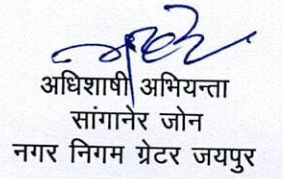 अधिशाषी अभियन्ता
सांगानेर जोन
नगर निगम ग्रेटर जयपुर